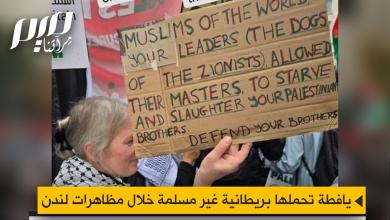 MUSLIMS OF THE WORLD.
YOUR LEADERS (THE DOGS
OF THE ZIONISTS) ALLOWED
THEIR MASTERS. TO STARVE
AND SLAUGHTER YOUR PALESTINIAN
BROTHERS
DEFEND YOUR BROTHERS
يافطة تحملها بريطانية غير مسلمة خلال مظاهرات لندن